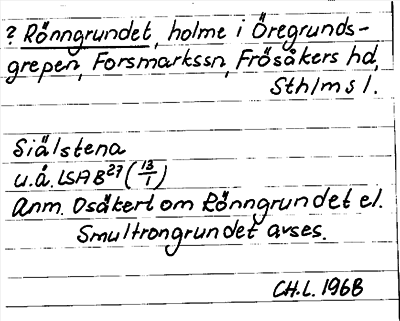 ? Rönngrundet, holme i Öregrunds-
grepen, Forsmarkssn, Frösåkers hd,
Sthlms l.
Siälstena
u.å. LSA B27 (13/1)
Anm. Osäkert om Rönngrundet el.
Smultrongrundet avses.
CH.L. 1968